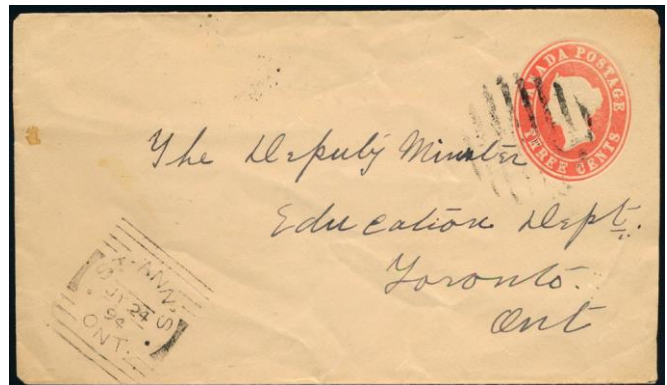 CANADA POSTAGE
THREE CENTS
The Deputy Minister
Education Dept.
Toronto.
Ont
ST. ANN'S
JY 24
94
ONT.